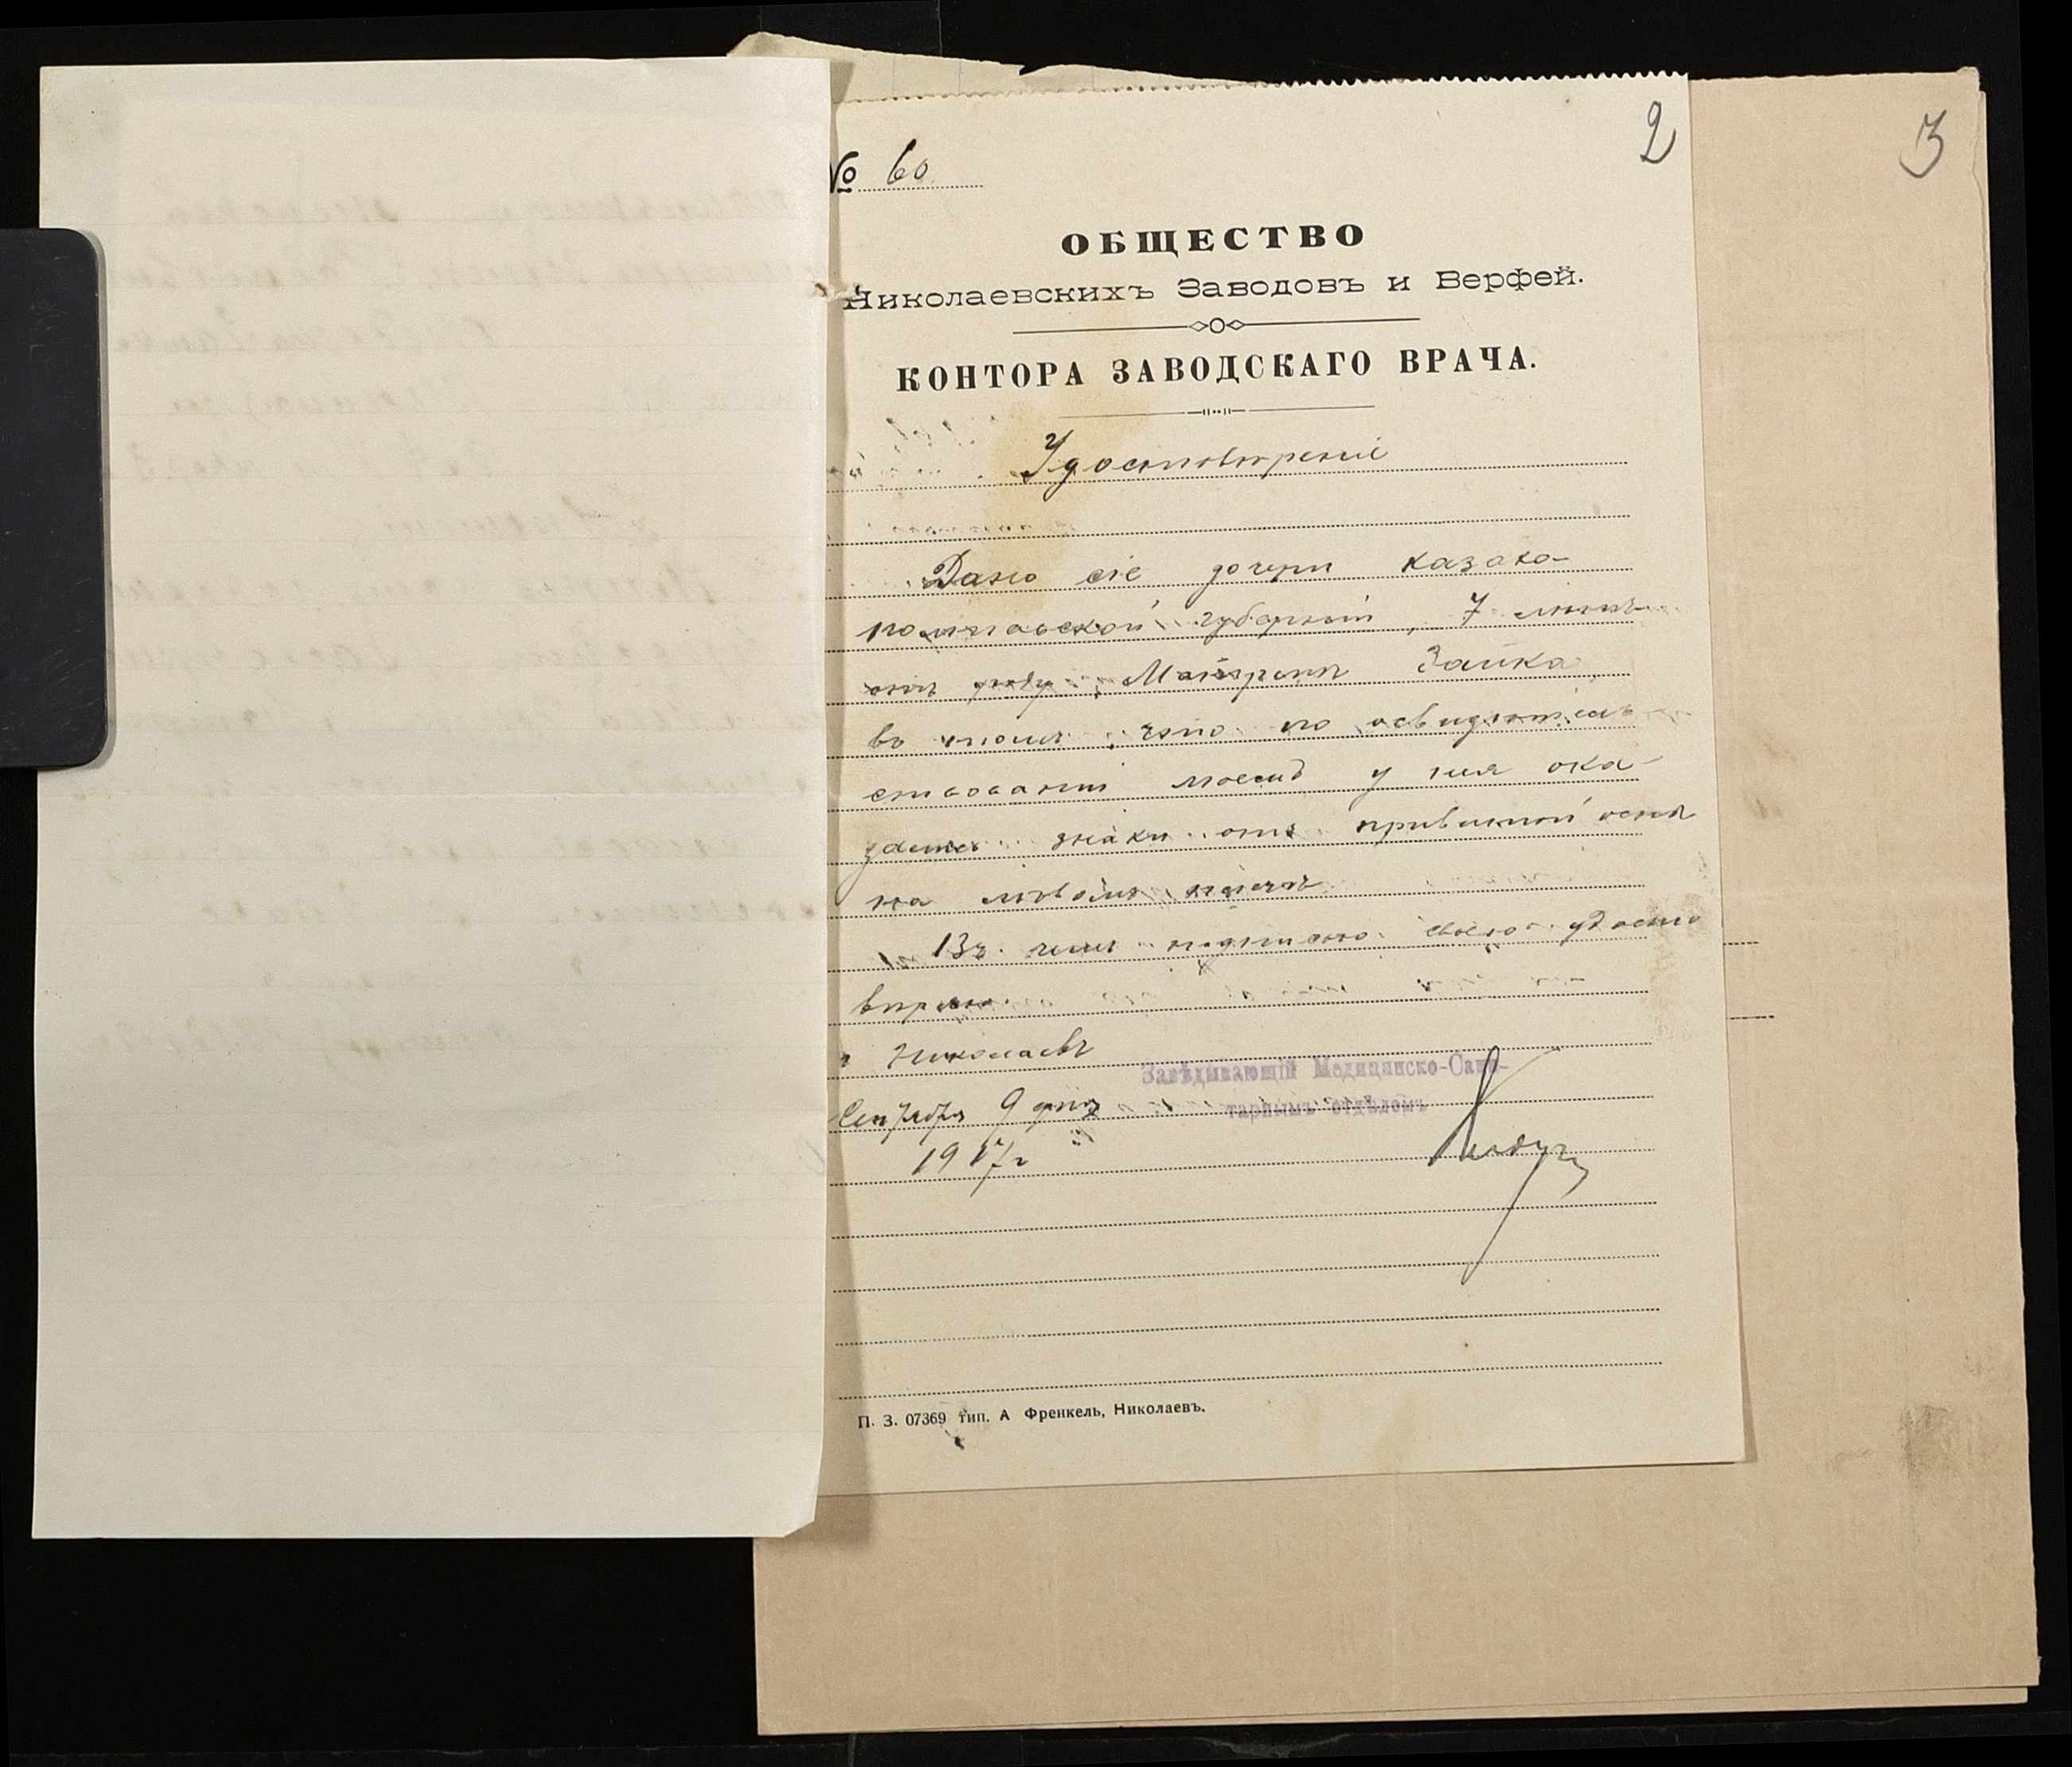 2
3
№ 60
ОБЩЕСТВО
Николаевскихъ Заводовъ и Верфей.
КОНТОРА ЗАВОДСКАГО ВРАЧА.
Удостовѣреніе
Дано сіе дочери казака
полтавской губерніи, 7 лѣтъ
отъ роду, Зайка
въ томъ, что по освидѣтель
ствованіи мною у нея ока-
зались знаки отъ привитой оспы
на лѣвомъ плечѣ
Въ чемъ подписью своею удосто
вѣряю.
г Николаевъ
Сентября 9 дня
1917 г
Завѣдывающій Медицинско-Сани-
тарнымъ отдѣломъ
П. З. 07369 тип. А Френкель, Николаевъ.